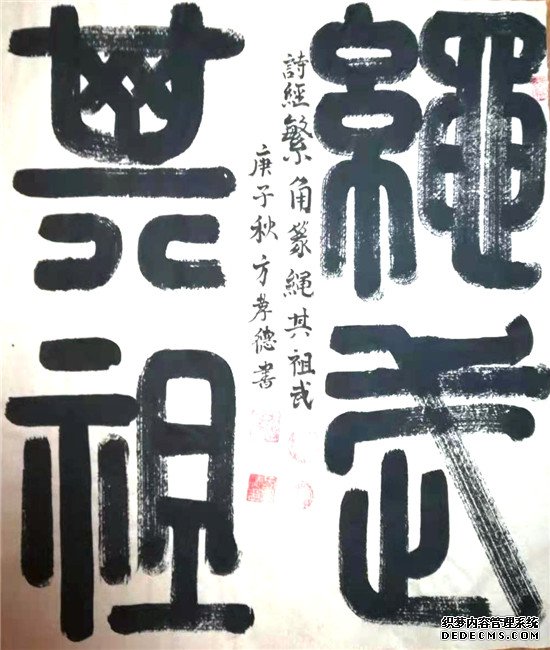 繩武
詩經繁角篆繩其祖武
庚子秋方孝德書
其祖
织梦内容管理系统
DEDECMS.COM